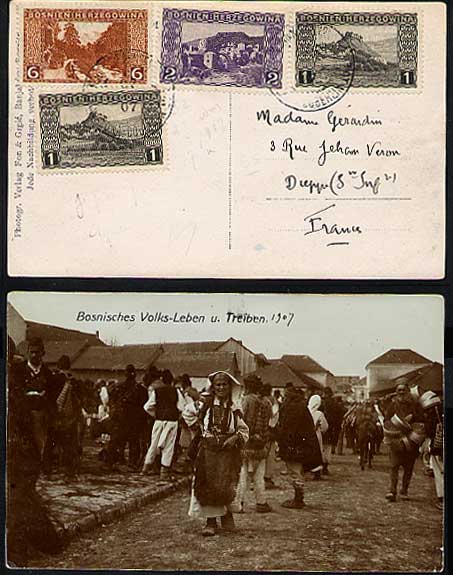 BOSNIEN-HERZEGOWINA
6 6
BOSNIEN-HERZEGOWINA
2 2
BOSNIEN-HERZEGOWINA
1 1
BOSNIEN-HERZEGOWINA
1 1
Photogr. Verlag Fon & Grgić, Banjaluka
Jede Nachbildung verboten
Madame Gerardin
3 Rue Jehan Veron
Dieppe (Sne Infre)
France
Bosnisches Volks-Leben u. Treiben. 1907